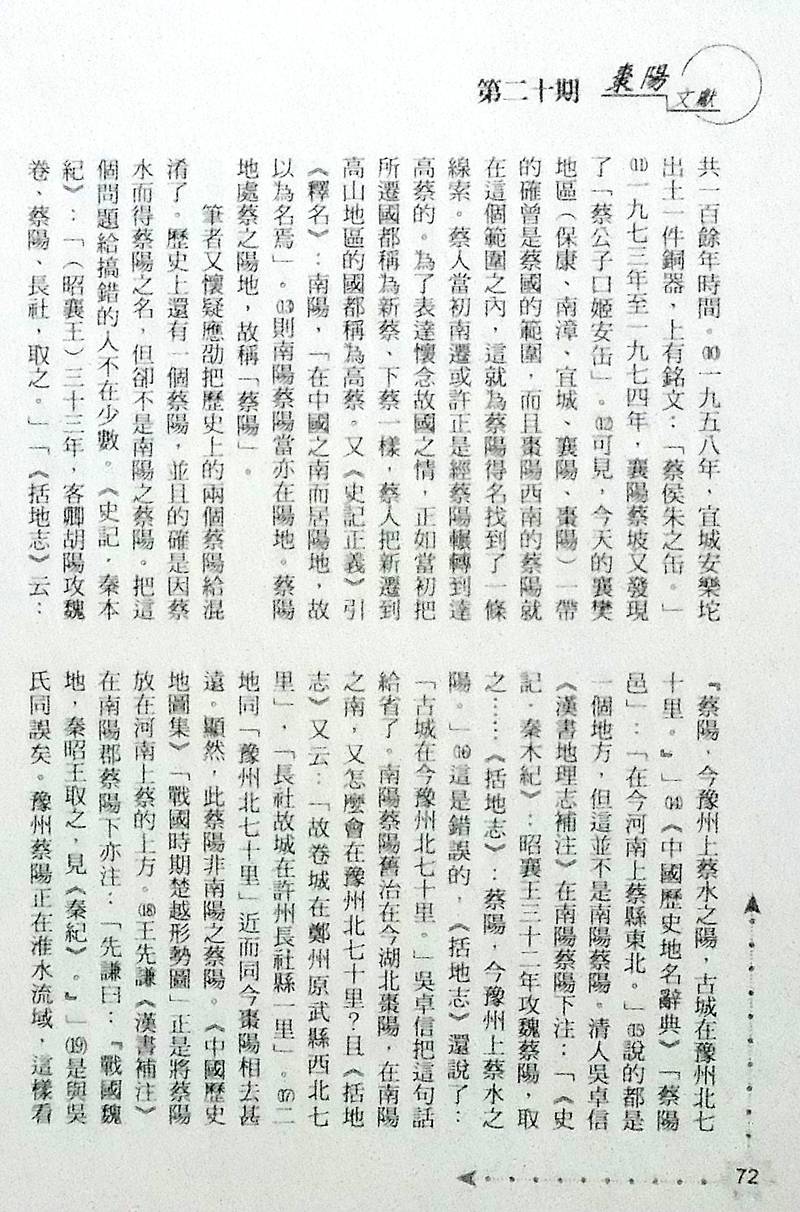 棗陽
文獻
第二十期
共一百餘年時間。⑽一九五八年，宜城安樂坨
出土一件銅器，上有銘文：「蔡侯朱之缶。」
⑾一九七三年至一九七四年，襄陽蔡坡又發現
了「蔡公子口姬安缶」。⑿可見，今天的襄樊
地區（保康、南漳、宜城、襄陽、棗陽）一帶
的確曾是蔡國的範圍，而且棗陽西南的蔡陽就
在這個範圍之內，這就為蔡陽得名找到了一條
線索。蔡人當初南遷或許正是經蔡陽輾轉到達
高蔡的。為了表達懷念故國之情，正如當初把
所遷國都稱為新蔡、下蔡一樣，蔡人把新遷到
高山地區的國都稱為高蔡。又《史記正義》引
《釋名》：南陽，「在中國之南而居陽地，故
以為名焉」。⒀則南陽蔡陽當亦在陽地。蔡陽
地處蔡之陽地，故稱「蔡陽」。
筆者又懷疑應劭把歷史上的兩個蔡陽給混
淆了。歷史上還有一個蔡陽，並且的確是因蔡
水而得蔡陽之名，但卻不是南陽之蔡陽。把這
個問題給搞錯的人不在少數。《史記．秦本
紀》：「（昭襄王）三十三年，客卿胡陽攻魏
卷、蔡陽、長社，取之。」「《括地志》云：
『蔡陽，今豫州上蔡水之陽，古城在豫州北七
十里。』」⒁《中國歷史地名辭典》「蔡陽
邑」：「在今河南上蔡縣東北。」⒂說的都是
一個地方，但這並不是南陽蔡陽。清人吳卓信
《漢書地理志補注》在南陽蔡陽下注：「《史
記．秦木紀》：昭襄王三十二年攻魏蔡陽，取
之……《括地志》：蔡陽，今豫州上蔡水之
陽。」⒃這是錯誤的，《括地志》還說了：
「古城在今豫州北七十里。」吳卓信把這句話
給省了。南陽蔡陽舊治在今湖北棗陽，在南陽
之南，又怎麼會在豫州北七十里？且《括地
志》又云：「故卷城在鄭州原武縣西北七
里」，「長社故城在許州長社縣一里」。⒄二
地同「豫州北七十里」近而同今棗陽相去甚
遠。顯然，此蔡陽非南陽之蔡陽。《中國歷史
地圖集》「戰國時期楚越形勢圖」正是將蔡陽
放在河南上蔡的上方。⒅王先謙《漢書補注》
在南陽郡蔡陽下亦注：「先謙曰：『戰國魏
地，秦昭王取之，見《秦紀》。』」⒆是與吳
氏同誤矣。豫州蔡陽正在淮水流域，這樣看
72